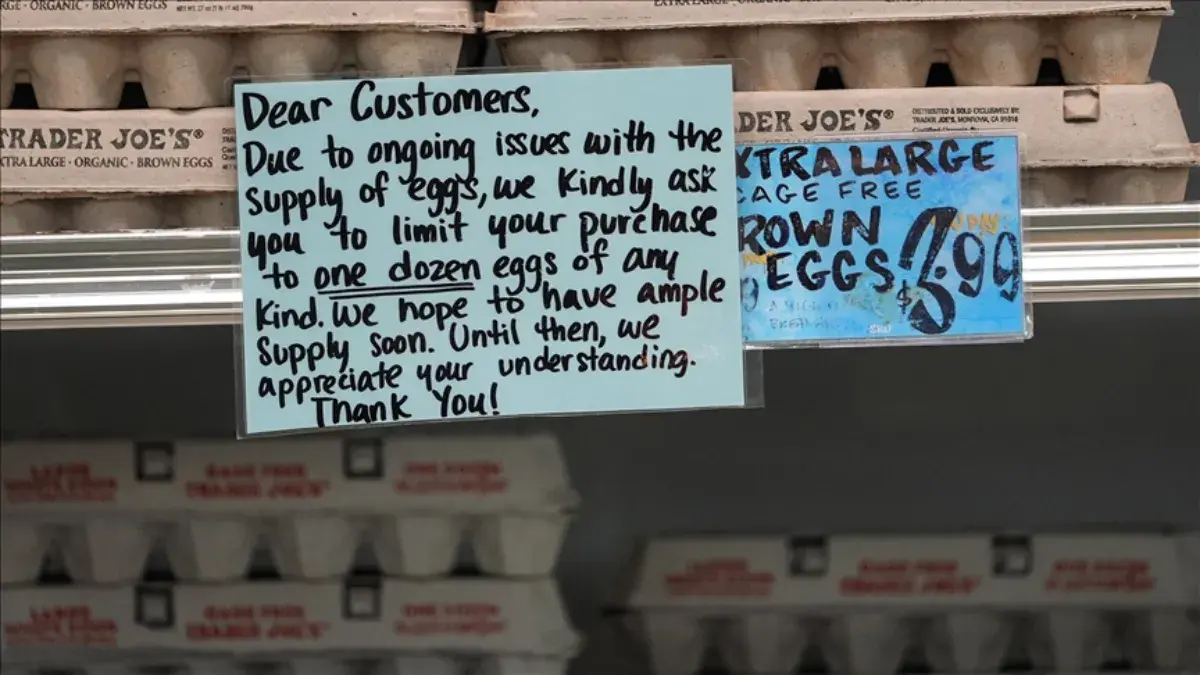 RGE · ORGANIC · BROWN EGGS
EXTRA LARGE · ORGANIC · BROWN EGGS
TRADER JOE'S®
XTRA LARGE · ORGANIC · BROWN EGGS
Dear Customers,
Due to ongoing issues with the
supply of eggs, we kindly ask
you to limit your purchase
to one dozen eggs of any
kind. We hope to have ample
supply soon. Until then, we
appreciate your understanding.
Thank You!
DER JOE'S®
DISTRIBUTED & SOLD EXCLUSIVELY BY:
TRADER JOE'S, MONROVIA, CA 91016
XTRA LARGE
CAGE FREE
ROWN
EGGS
$3.99
LARGE
CAGE FREE
TRADER JOE'S
ONE DOZEN
LARGE
CAGE FREE
TRADER JOE'S
ONE DOZEN